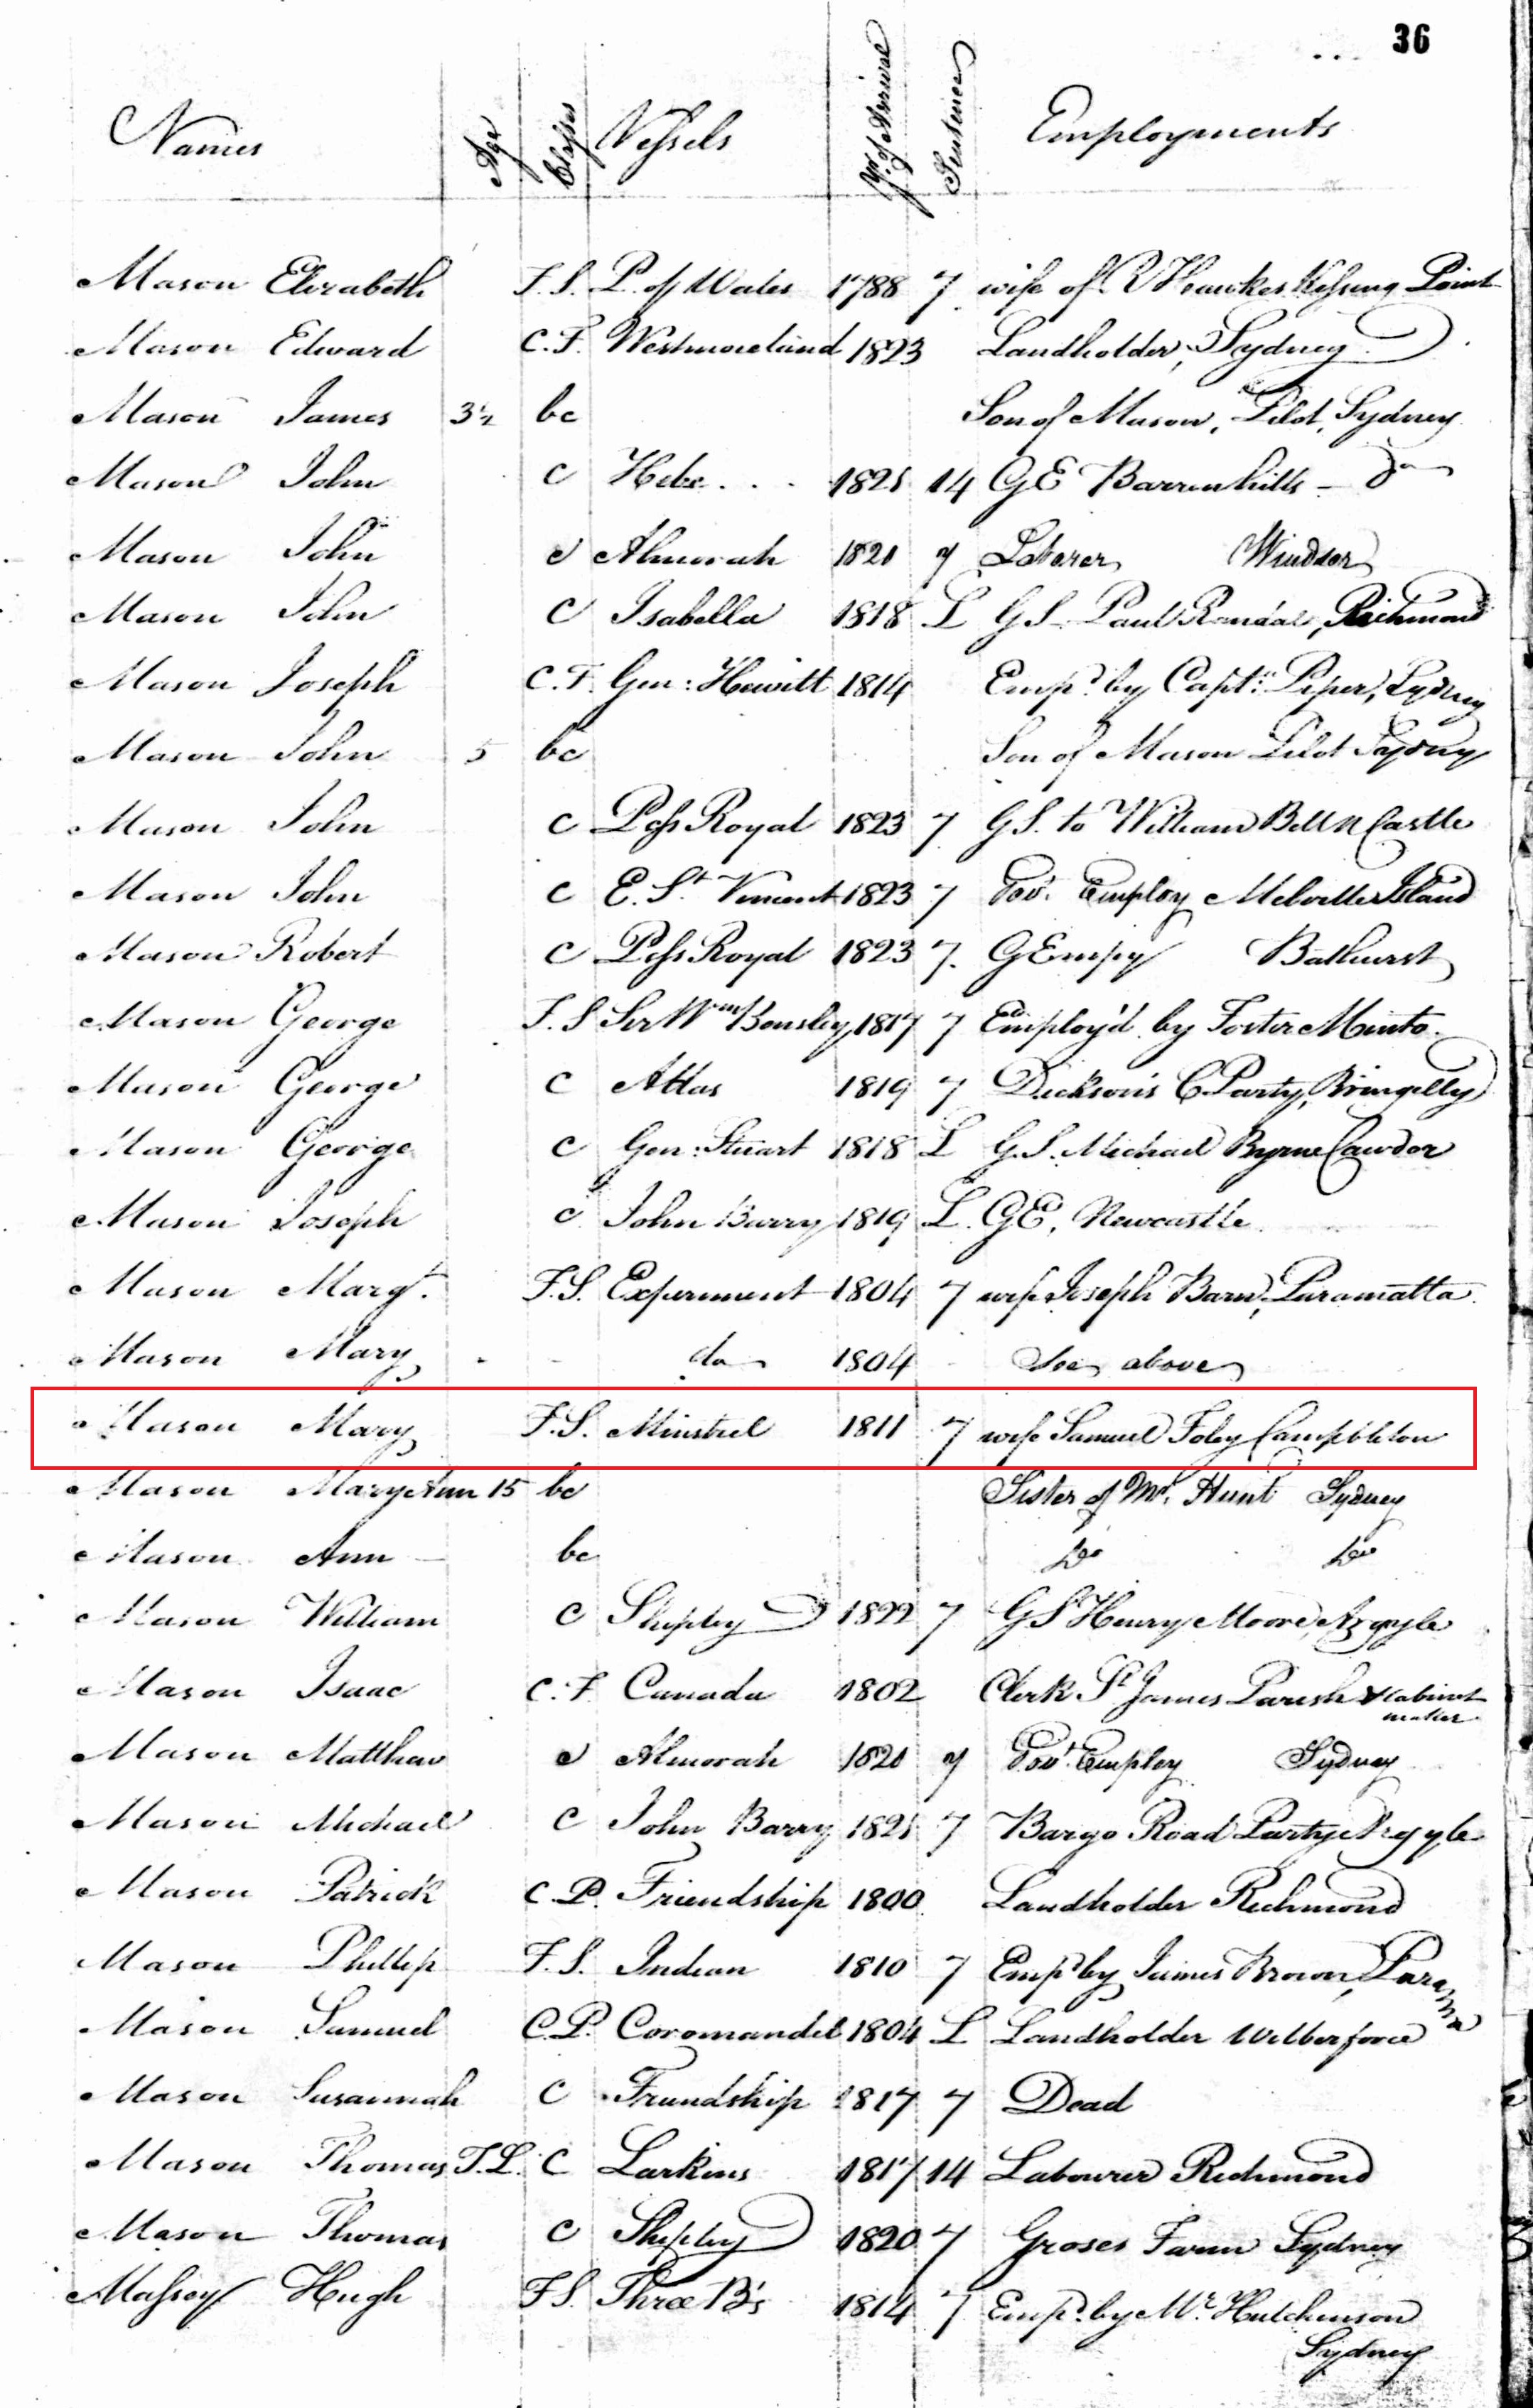 36
Names Age Classes Vessels Yr of Arrival Sentence Employments
Mason Elizabeth F.S. P. of Wales 1788 7 wife of R Hawkes Kissing Point
Mason Edward C.F. Westmoreland 1823 Landholder, Sydney
Mason James 3½ bc Son of Mason, Pilot, Sydney
Mason John C Hebe 1821 14 GE Barrenhills - Do
Mason John C Almorah 1820 7 Laborer Windsor
Mason John C Isabella 1818 L GS Paul Randal, Richmond
Mason Joseph C.F. Gen: Hewitt 1814 Empd by Captn Piper, Sydney
Mason John 5 bc Son of Mason Pilot Sydney
Mason John C Pss Royal 1823 7 G.S. to William Bell N Castle
Mason John C E. St Vincent 1823 7 Govt Employ Melville Island
Mason Robert C Pss Royal 1823 7. G Empy Bathurst
Mason George F.S Sir Wm Bensley 1817 7 Employ'd by Foster Minto.
Mason George C Atlas 1819 7 Dickson's C. Party, Bringelly
Mason George C Gen: Stuart 1818 L G.S. Michael Byrne Cawdor
Mason Joseph C John Barry 1819 L. GE, Newcastle
Mason Margt. F.S. Experiment 1804 7 wife Joseph Barn, Paramatta
Mason Mary do 1804 See above
Mason Mary F.S. Minstrel 1811 7 wife Samuel Foley Campbleton
Mason Mary Ann 15 bc Sister of Mrs. Hunt Sydney
Mason Ann bc Do Do
Mason William C Shipley 1822 7 GS Henry Moore Argyle
Mason Isaac C.F. Canada 1802 Clerk St James Parish & Cabinet
maker
Mason Matthew C Almorah 1820 7 Govt Employ Sydney
Mason Michael C John Barry 1821 7 Bargo Road Party Argyle
Mason Patrick C.P. Friendship 1800 Landholder Richmond
Mason Phillip F.S. Indian 1810 7 Empd by James Brown, Parama
Mason Samuel C.P. Coromandel 1804 L Landholder Wilberforce
Mason Susannah C Friendship 1817 7 Dead
Mason Thomas T.L. C Larkins 1817 14 Labourer Richmond
Mason Thomas C Shipley 1820 7 Groses Farm Sydney
Massey Hugh F.S. Three B's 1814 7 Empd. by Mr. Hutchinson
Sydney